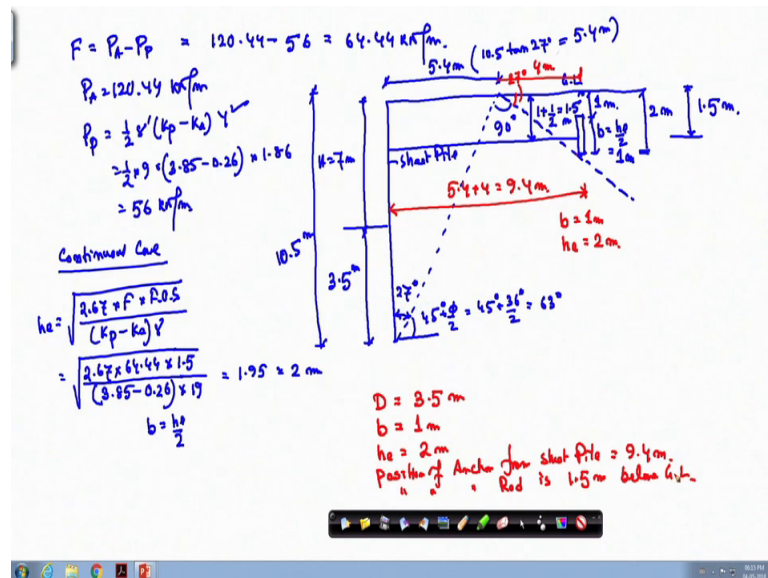 F = PA - PP = 120.44 - 56 = 64.44 kN/m.
PA = 120.44 kN/m
PP = 1/2 γ' (KP - KA) Y²
= 1/2 * 9 * (3.85 - 0.26) * 1.86
= 56 kN/m
Continuous Case
he = √(2.67 * F * F.O.S / (KP - KA) γ)
= √(2.67 * 64.44 * 1.5 / (3.85 - 0.26) * 19) = 1.95 ≈ 2 m
b = he/2
5.4m (10.5 tan 27° = 5.4m)
27° 4m
90°
1 + 1/2 = 1.5 m
1m.
b = he/2 = 1m
2m
1.5m.
H = 7m
sheet pile
5.4 + 4 = 9.4m
b = 1m
he = 2m.
10.5m
3.5m
27°
45° + φ/2 = 45° + 36°/2 = 63°
D = 3.5m
b = 1m
he = 2m
Position of Anchor from sheet Pile = 9.4m.
" " " Rod is 1.5m below G.L.
06:15 PM